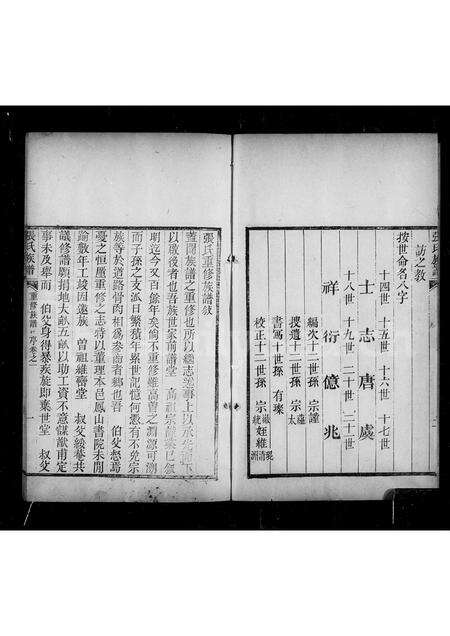 張氏族譜
訪之教
按世命名八字
十四世 十五世 十六世 十七世
士 志 唐 虞
十八世 十九世 二十世 二十一世
祥 衍 億 兆
編次十二世孫 宗謹
授遺十二世孫 宗
書寫十世孫 有璨
校正十二世孫 宗
張氏重修族譜敘
蓋聞族譜之重修也所以繼志述事上以承先而下
以啟後者也吾族世家商譜堂 高祖宗
明迄今又百餘年矣倘不重修雖高曾之淵源可溯
而子孫之支派日繁積年累世記憶何憑有不免宗
族等於道路骨肉相為參商者鄉也吾 伯父
憂之恒厪重修之志將以董理本邑鳳山書院未閒
論數年工竣因邀族 曾祖維 堂 叔父 卷共
議修譜願捐地大畝五畝以助工資不意謀猷甫定
事未及舉而 伯父身得暴疾旋即棄世堂 叔父
張氏族譜 重修族譜 序 卷之一